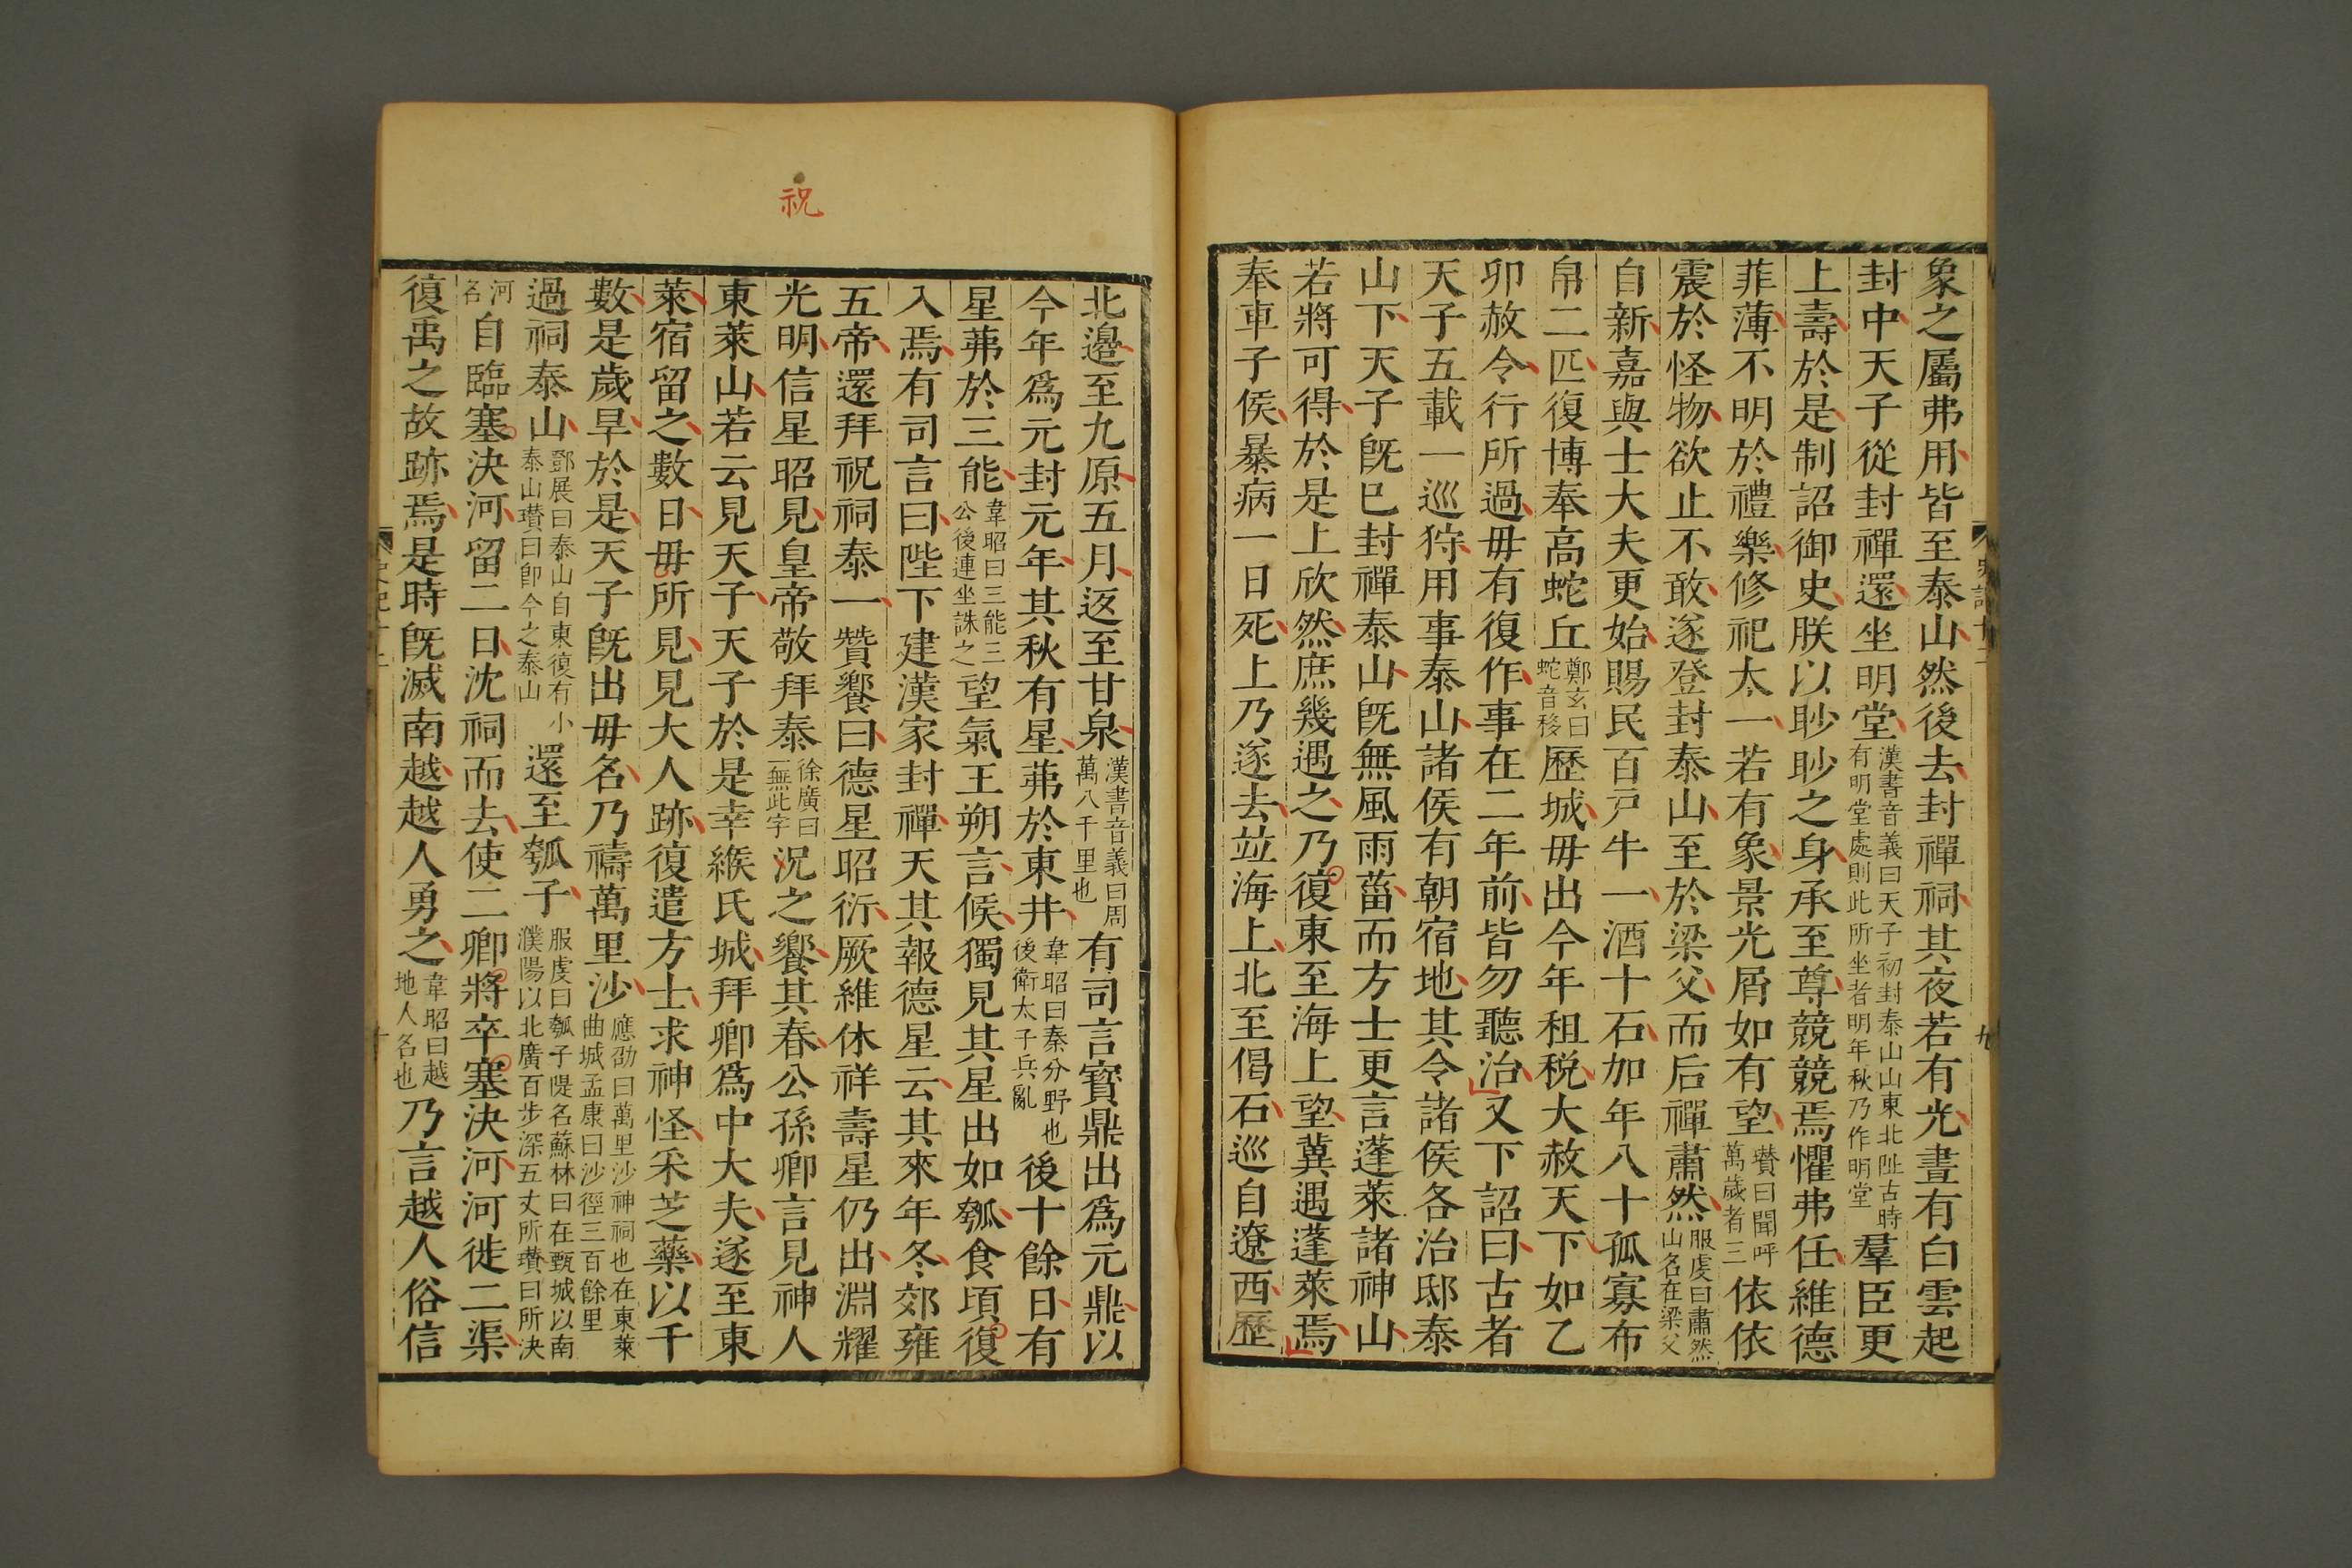 象之屬弗用皆至泰山然後去封禪祠其夜若有光晝有白雲起
封中天子從封禪還坐明堂漢書音義曰天子初封泰山山東北阯古時有明堂處則此所坐者明年秋乃作明堂羣臣更
上壽於是制詔御史朕以眇眇之身承至尊兢兢焉懼弗任維德
菲薄不明於禮樂修祀太一若有象景光屑如有望瓚曰聞呼萬歲者三依依
震於怪物欲止不敢遂登封泰山至於梁父而后禪肅然服虔曰肅然山名在梁父
自新嘉與士大夫更始賜民百戸牛一酒十石加年八十孤寡布
帛二匹復博奉高蛇丘鄭玄曰蛇音移歷城毋出今年租稅大赦天下如乙
卯赦令行所過毋有復作事在二年前皆勿聽治又下詔曰古者
天子五載一巡狩用事泰山諸侯有朝宿地其令諸侯各治邸泰
山下天子旣已封禪泰山旣無風雨菑而方士更言蓬萊諸神山
若將可得於是上欣然庶幾遇之乃復東至海上望冀遇蓬萊焉
奉車子侯暴病一日死上乃遂去竝海上北至偈石巡自遼西歷
北邊至九原五月返至甘泉漢書音義曰周萬八千里也有司言寶鼎出爲元鼎以
今年爲元封元年其秋有星茀於東井韋昭曰秦分野也後衛太子兵亂後十餘日有
星茀於三能韋昭曰三能三公後連坐誅之望氣王朔言候獨見其星出如瓠食頃復
入焉有司言曰陛下建漢家封禪天其報德星云其來年冬郊雍
五帝還拜祝祠泰一贊饗曰德星昭衍厥維休祥壽星仍出淵耀
光明信星昭見皇帝敬拜泰徐廣曰一無此字況之饗其春公孫卿言見神人
東萊山若云見天子天子於是幸緱氏城拜卿爲中大夫遂至東
萊宿留之數日毋所見見大人跡復遣方士求神怪采芝藥以千
數是歲旱於是天子旣出毋名乃禱萬里沙應劭曰萬里沙神祠也在東萊曲城孟康曰沙徑三百餘里
過祠泰山鄧展曰泰山自東復有小泰山瓚曰卽今之泰山還至瓠子服虔曰瓠子隄名蘇林曰在甄城以南濮陽以北廣百步深五丈所瓚曰所決
河名自臨塞決河留二日沈祠而去使二卿將卒塞決河河徙二渠
復禹之故跡焉是時旣滅南越越人勇之韋昭曰越地人名也乃言越人俗信
祝
九